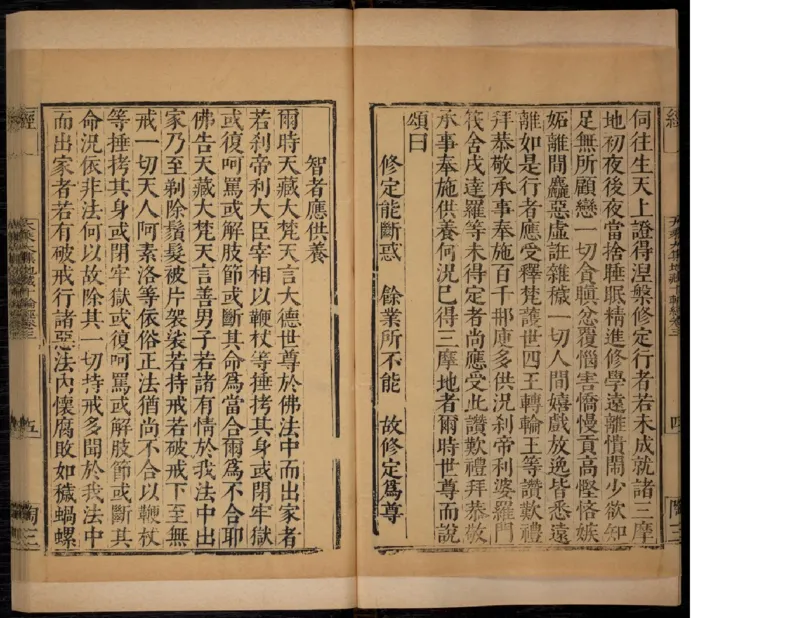 伺往生天上證得涅槃修定行者若未成就諸三摩
地初夜後夜當捨睡眠精進修學遠離憒閙少欲知
足無所顧戀一切貪瞋忿覆惱害憍慢貢高慳悋嫉
妬離間麤惡虛誑雜穢一切人間嬉戲放逸皆悉遠
離如是行者應受釋梵護世四王轉輪王等讚歎禮
拜恭敬承事奉施百千那庾多供況刹帝利婆羅門
筏舍戍達羅等未得定者尚應受此讚歎禮拜恭敬
承事奉施供養何況已得三摩地者爾時世尊而說
頌曰
修定能斷惑 餘業所不能 故修定爲尊
智者應供養
爾時天藏大梵天言大德世尊於佛法中而出家者
若刹帝利大臣宰相以鞭杖等捶拷其身或閉牢獄
或復呵罵或解肢節或斷其命爲當合爾爲不合耶
佛告天藏大梵天言善男子若諸有情於我法中出
家乃至剃除鬚髮被片袈裟若持戒若破戒下至無
戒一切天人阿素洛等依俗正法猶尚不合以鞭杖
等捶拷其身或閉牢獄或復呵罵或解肢節或斷其
命況依非法何以故除其一切持戒多聞於我法中
而出家者若有破戒行諸惡法內懷腐敗如穢蝸螺
經
大乘大集地藏十輪經卷三
四
陶三
經
大乘大集地藏十輪經卷三
五
陶三